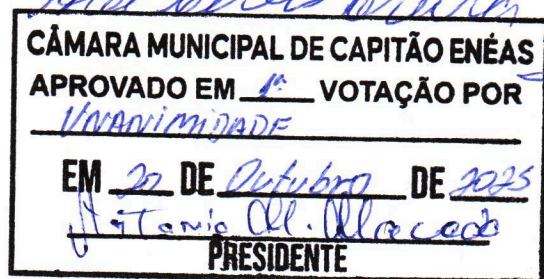 CÂMARA MUNICIPAL DE CAPITÃO ENÉAS
APROVADO EM 1ª VOTAÇÃO POR
UNANIMIDADE
EM 20 DE Outubro DE 2025
Antonio M. Macedo
PRESIDENTE